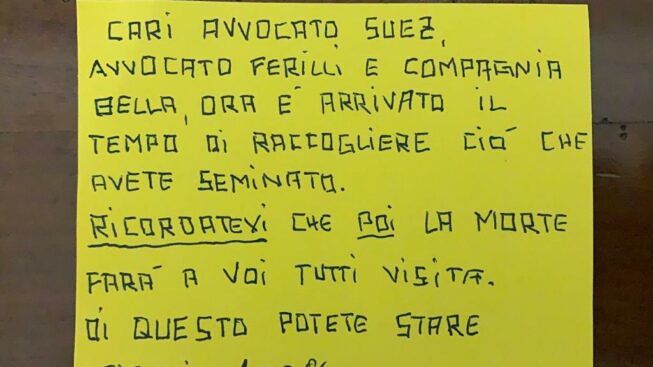 CARI AVVOCATO SUEZ,
AVVOCATO FERILLI E COMPAGNIA
BELLA, ORA E' ARRIVATO IL
TEMPO DI RACCOGLIERE CIO' CHE
AVETE SEMINATO.
RICORDATEVI CHE POI LA MORTE
FARA' A VOI TUTTI VISITA.
DI QUESTO POTETE STARE